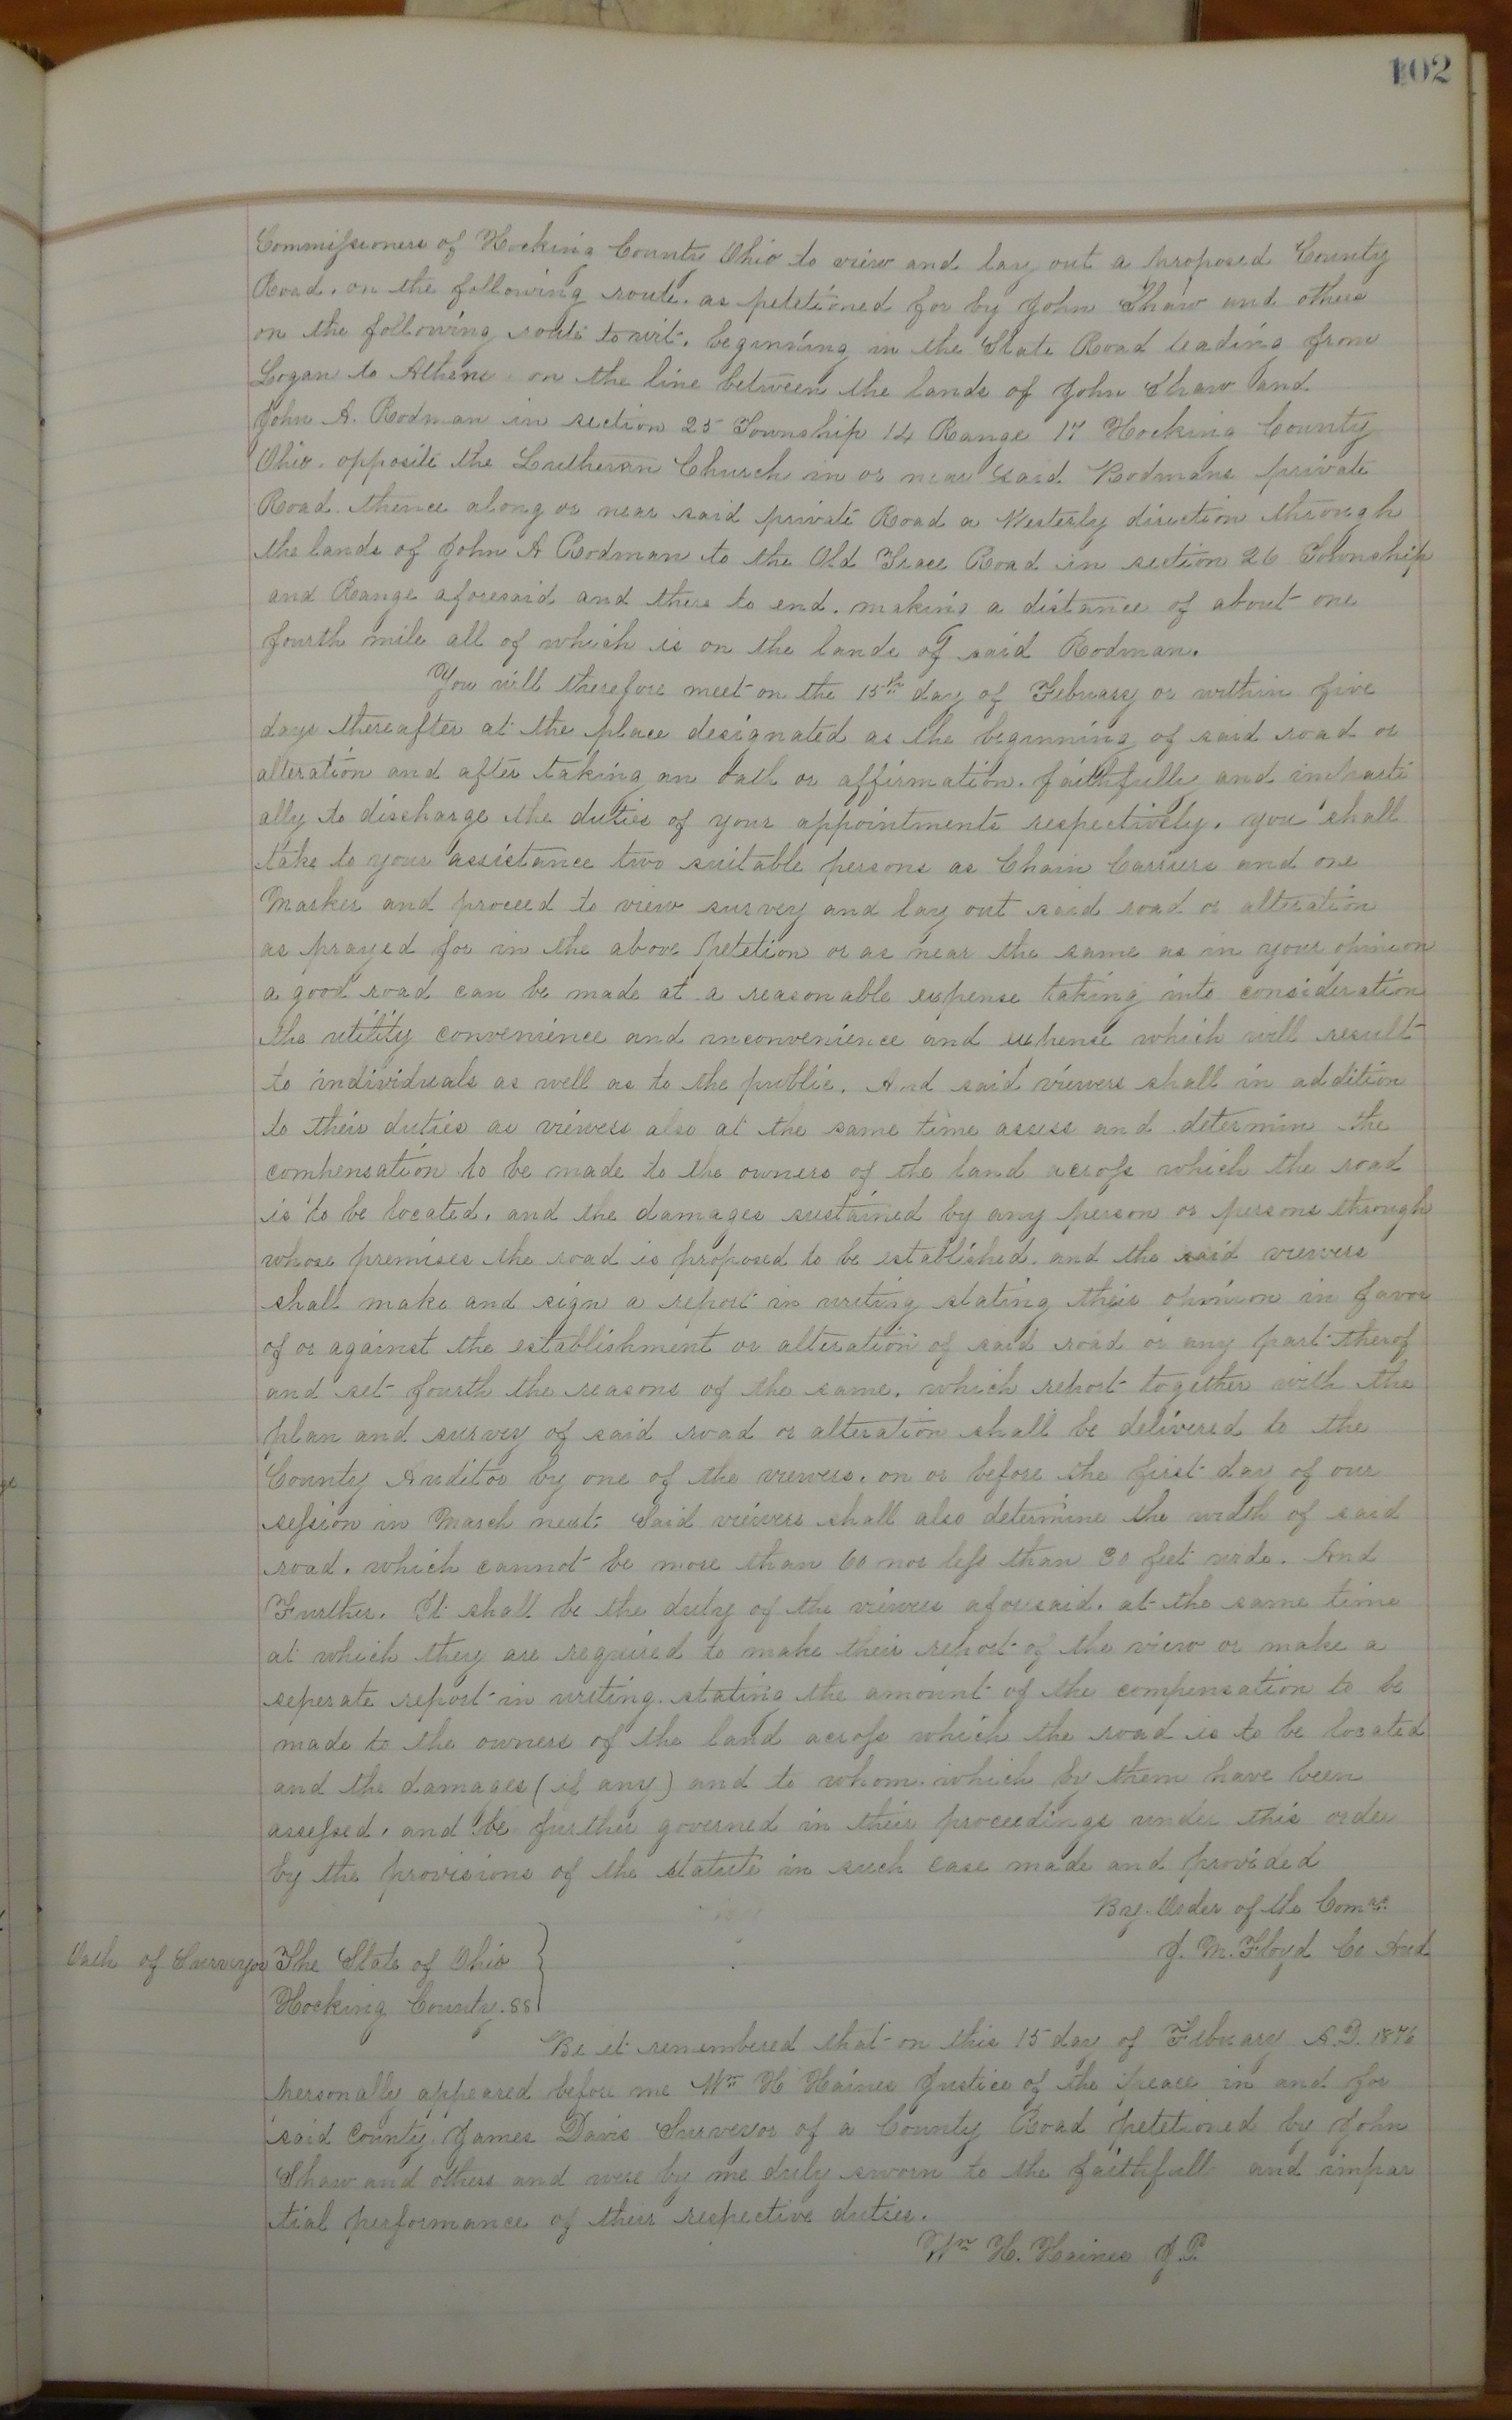 102
Commissioners of Hocking County Ohio to view and lay out a proposed County
Road. on the following route. as petetioned for by John Shaw and others
on the following route towit. beginning in the State Road leading from
Logan to Athens on the line between the lands of John Shaw and
John A. Rodman in section 25 Township 14 Range 17 Hocking County
Ohio. opposite the Lutheran Church in or near said Rodmans private
Road. thence along or near said private Road a Westerly direction through
the lands of John A Rodman to the Old Trace Road in section 26 Township
and Range aforesaid and there to end. making a distance of about one
fourth mile all of which is on the lands of said Rodman.
You will therefore meet on the 15th day of Febuary or within five
days thereafter at the place designated as the beginning of said road or
alteration and after taking an oath or affirmation. faithfully and imparti
ally to discharge the duties of your appointments respectively. you shall
take to your assistance two suitable persons as Chain Carriers and one
Marker and proceed to view survey and lay out said road or alteration
as prayed for in the above petetion or as near the same as in your opinion
a good road can be made at a reasonable expense taking into consideration
the utility convenience and inconvenience and expense which will result
to individuals as well as to the public. And said viewers shall in addition
to their duties as viewers also at the same time assess and determin the
compensation to be made to the owners of the land across which the road
is to be located. and the damages sustained by any person or persons through
whose premises the road is proposed to be established. and the said viewers
shall make and sign a report in writing stating their opinion in favor
of or against the establishment or alteration of said road or any part therof
and set fourth the reasons of the same. which report together with the
plan and survey of said road or alteration shall be delivered to the
County Auditor by one of the viewers. on or before the first day of our
session in March next. Said viewers shall also determine the width of said
road. which cannot be more than 60 nor less than 30 feet wide. And
Further. It shall be the duty of the viewers aforesaid. at the same time
at which they are required to make their report of the view or make a
seperate report in writing. stating the amount of the compensation to be
made to the owners of the land across which the road is to be located
and the damages (if any) and to whom. which by them have been
assessed. and be further governed in their proceedings under this order
by the provisions of the statute in such case made and provided
By Order of the Comrs.
J. M. Floyd Co Aud
Oath of Surveyor The State of Ohio }
Hocking County. SS
Be it remembered that on this 15 day of Febuary A.D. 1876
personally appeared before me Wm H Haines Justice of the peace in and for
said County James Davis Surveyor of a County Road petetioned by John
Shaw and others and were by me duly sworn to the faithfull and impar
tial performance of their respective duties.
Wm H. Haines J.P.